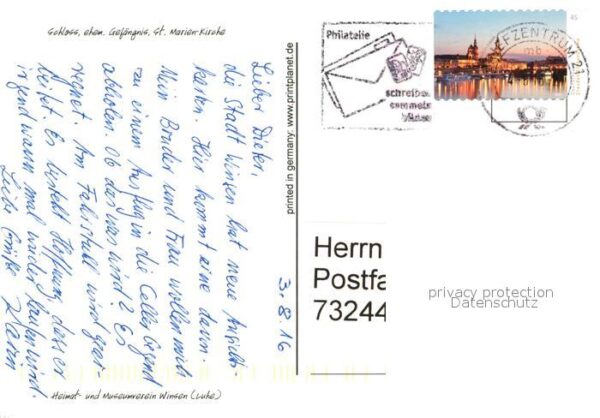 Schloss, ehem. Gefängnis, St. Marien-Kirche
Lieber Dieter,
die Stadt Winsen hat neue Ansichts
karten. Hier kommt eine davon.
Mein Bruder und Frau wollen mich
zu einem Ausflug in die Celler Gegend
abholen. Ob das was wird? Es
regnet. Am Fahrstuhl wird gear-
beitet. Es besteht Hoffnung, dass er
irgendwann mal wieder laufen wird.
Liebe Grüße Karin
3.8.16
Heimat- und Museumverein Winsen (Luhe)
printed in germany: www.printplanet.de
Philatelie
schreiben
sammeln
45
EFZENTRUM 21
mb
Herrn
Postfa
73244
privacy protection
Datenschutz